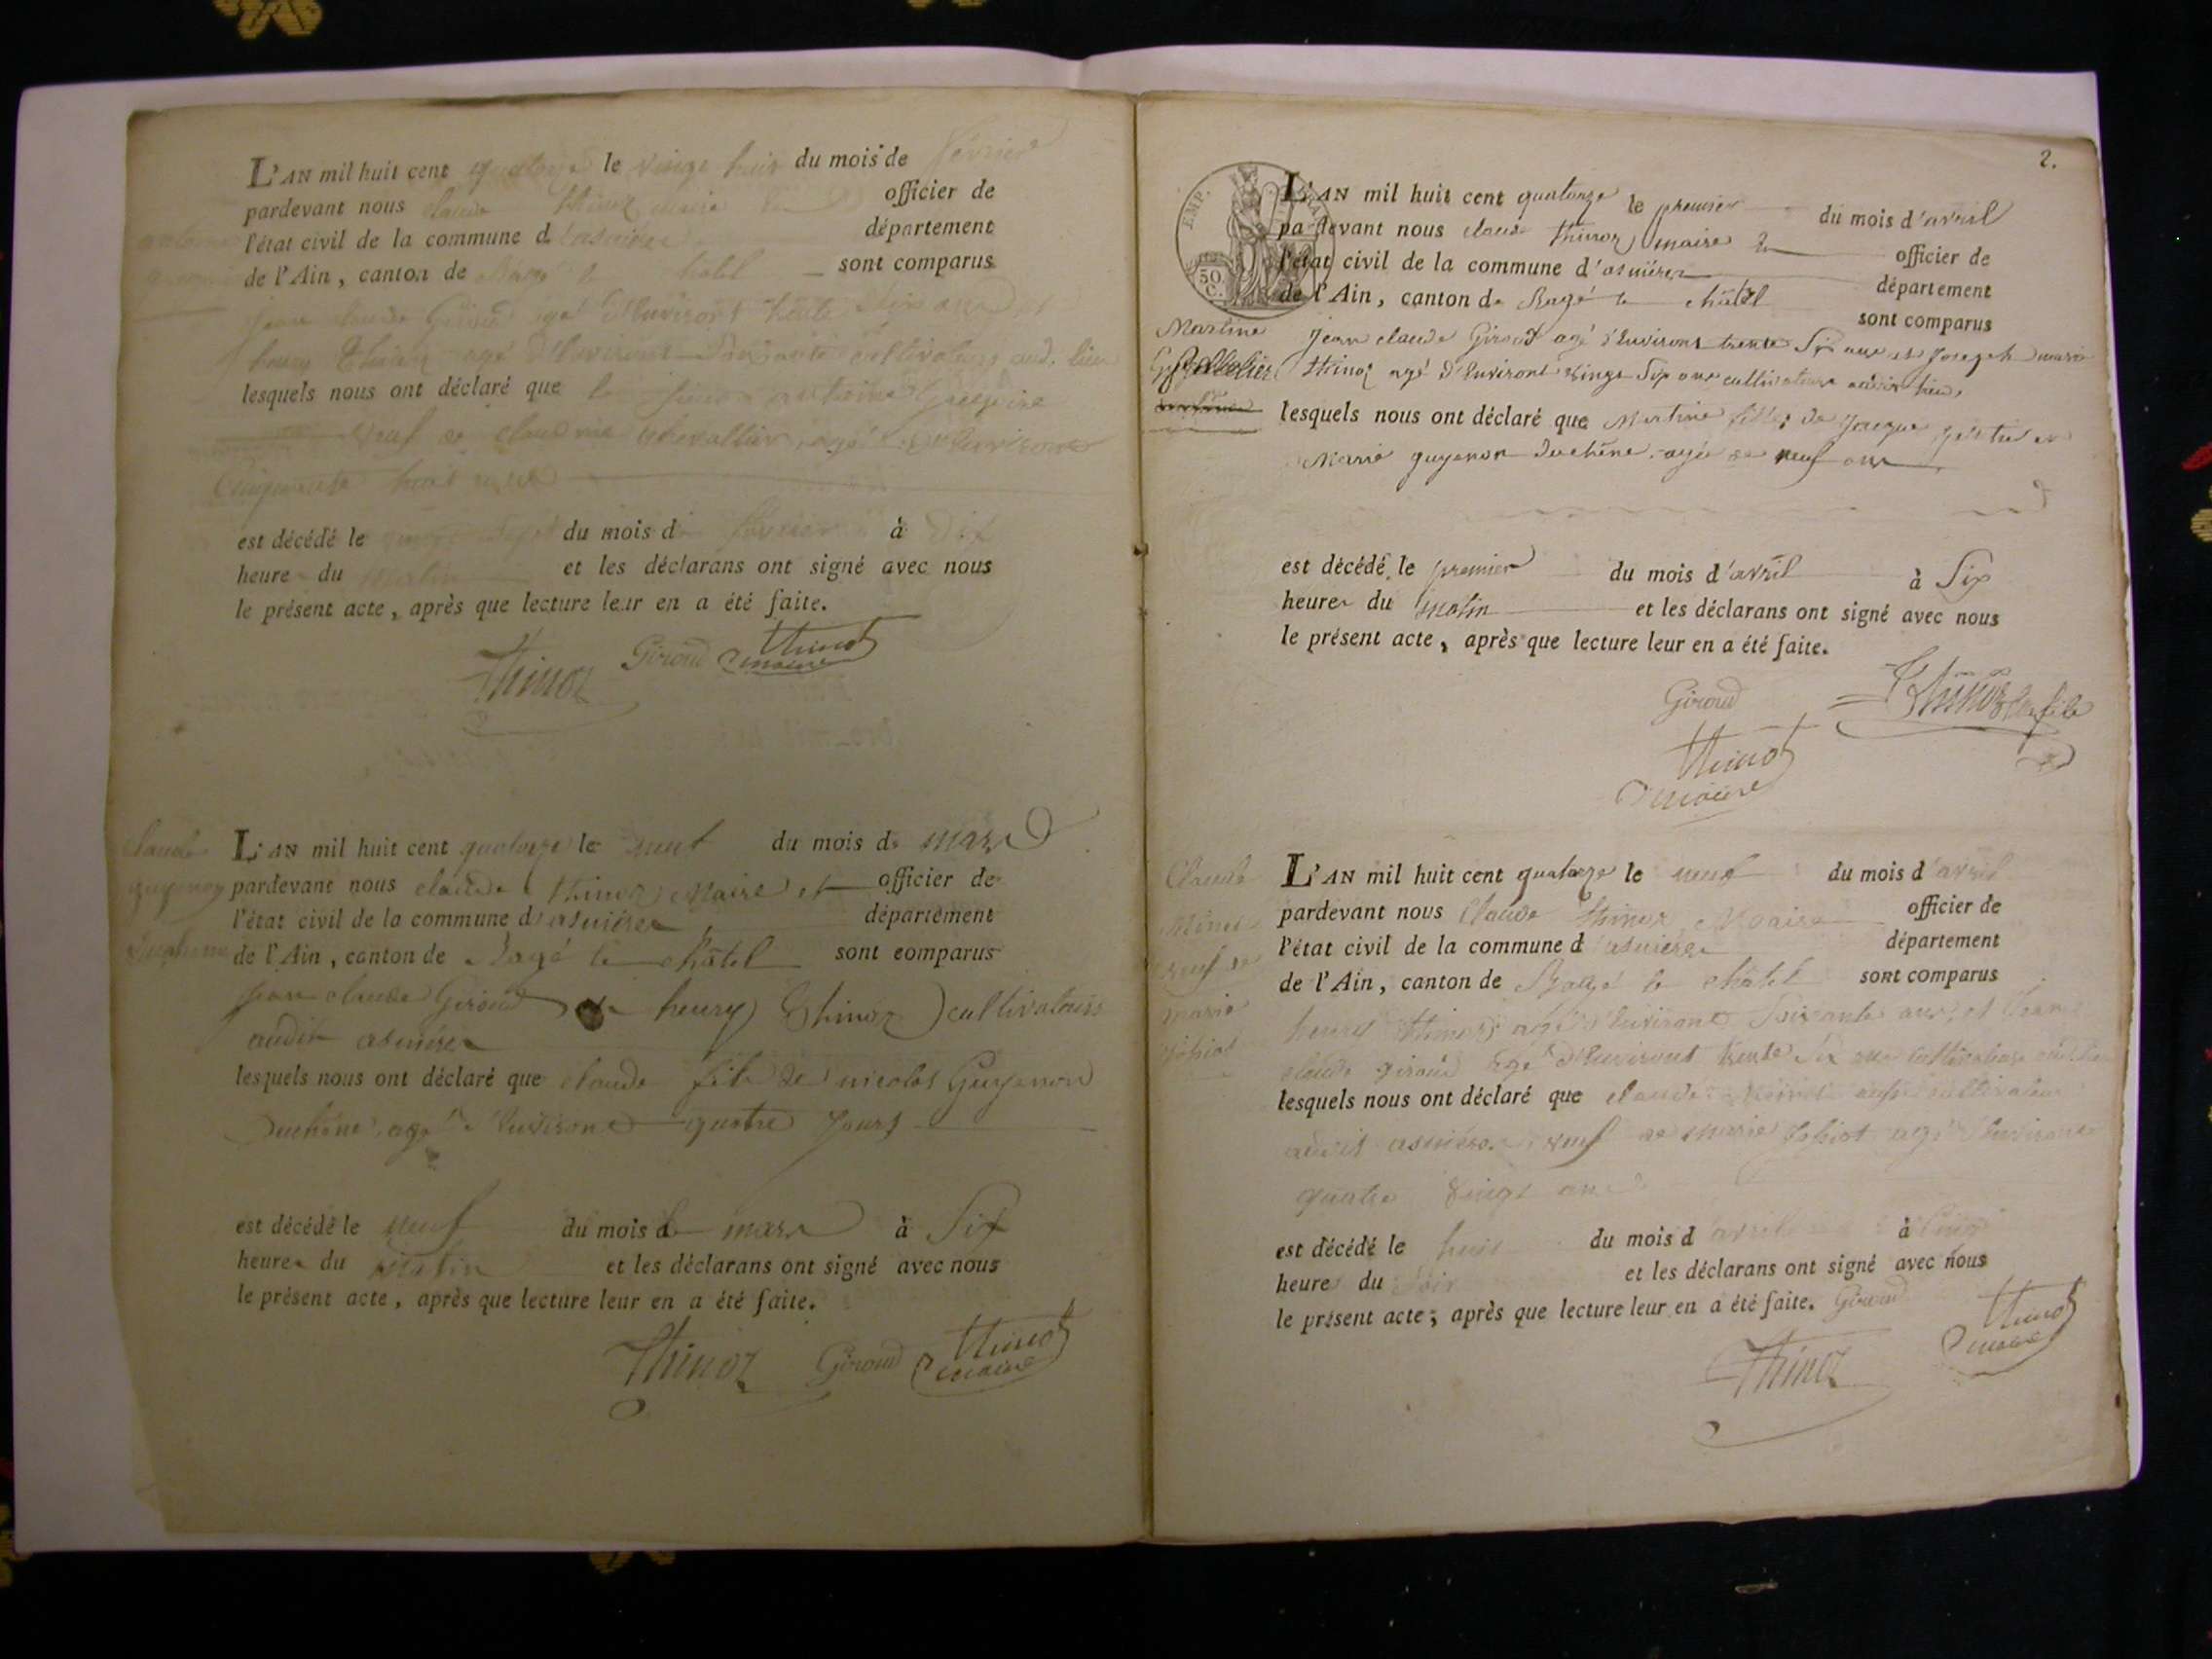 L'AN mil huit cent quatorze le vingt huit du mois de février
pardevant nous claude thinoz maire officier de
l'état civil de la commune d'asnières département
de l'Ain, canton de Bagé le châtel sont comparus
jean claude Giroud agé d'Environt trente Six ans et
henry thinoz agé d'Environt Soixante cultivateurs aud. lieu
lesquels nous ont déclaré que le sieur antoine Gregoire
veuf de claudine chevallier, agé d'Environt
Cinquante huit ans
est décédé le vingt Sept du mois de février à Dix
heures du matin et les déclarans ont signé avec nous
le présent acte, après que lecture leur en a été faite.
Thinoz Giroud thinoz
maire
claude
guyenon
Duchene
L'AN mil huit cent quatorze le neuf du mois de mars
pardevant nous claude thinoz Maire et officier de
l'état civil de la commune d'asnières département
de l'Ain, canton de Bagé le châtel sont comparus
jean claude Giroud et henry thinoz cultivateurs
audit asnières
lesquels nous ont déclaré que claude fils de nicolas Guyenon
Duchêne, agé d'Environt quatre Jours
est décédé le neuf du mois de mars à Six
heures du Matin et les déclarans ont signé avec nous
le présent acte, après que lecture leur en a été faite.
Thinoz Giroud thinoz
maire
2.
EMP.
50
C.
L'AN mil huit cent quatorze le premier du mois d'avril
pardevant nous claude thinoz maire officier de
l'état civil de la commune d'asnières département
de l'Ain, canton de Bagé le châtel sont comparus
Martine
jean claude Giroud agé d'Environt trente Six ans et Joseph marie
thinoz agé d'Environt vingt Six ans cultivateurs audit lieu
lesquels nous ont déclaré que Martine fille de Jacque
Marie guyenon Duchêne, agée de neuf ans
est décédé le premier du mois d'avril à Six
heures du matin et les déclarans ont signé avec nous
le présent acte, après que lecture leur en a été faite.
Giroud Thinoz fils
thinoz
maire
Claude
veuf de
marie
L'AN mil huit cent quatorze le neuf du mois d'avril
pardevant nous Claude thinoz Maire officier de
l'état civil de la commune d'asnières département
de l'Ain, canton de Bagé le châtel sont comparus
henry thinoz agé d'Environt Soixante ans, et Jean
claude giroud agé d'Environt trente Six ans cultivateurs
lesquels nous ont déclaré que claude cultivateur
audit asnières, veuf de marie agé d'Environt
quatre vingt ans
est décédé le huit du mois d'avril à
heures du Soir et les déclarans ont signé avec nous
le présent acte, après que lecture leur en a été faite. Giroud
Thinoz thinoz
maire